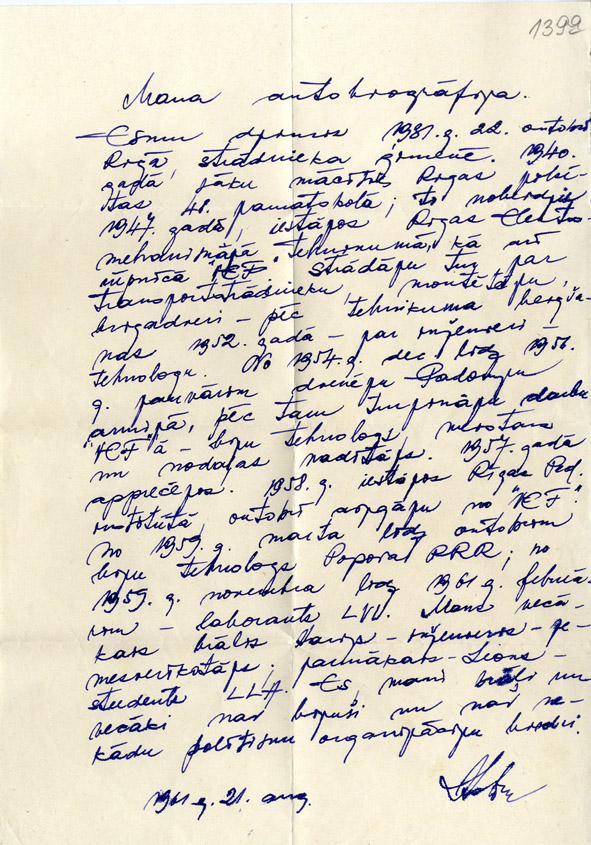 1399
Mana autobiogrāfija.
Esmu dzimis 1931. g. 22. oktobrī
Rīgā, strādnieka ģimenē. 1940.
gadā sāku mācīties Rīgas pilsē-
tas 41. pamatskolā; to nobeidzis
1947. gadā, iestājos Rīgas Elektro-
mehaniskajā Tehnikumā, kā arī
rūpnīcā VEF. Strādāju tur par
transportstrādnieku, montētāju,
brigadieri – pēc tehnikuma beigša-
nas 1952. gadā – par inženieri –
tehnologu. No 1954. g. dec. līdz 1956.
g. janvārim dienēju Padomju
armijā, pēc tam turpināju darbu
"VEF"ā – biju tehnologs,
un nodaļas vadītājs. 1957. gadā
apprecējos. 1958. g. iestājos Rīgas Ped.
institūtā, oktobrī aizgāju no "VEF".
No 1959. g. marta līdz oktobrim
biju tehnologs Popova RRR; no
1959. g. novembra līdz 1961 g. februā-
rim – laborants LVU. Mans vecā-
kais brālis – inženieris – ze-
mesierīkotājs; jaunākais –
students LLA. Es, mani brāļi un
vecāki nav bijuši un nav ne-
kādu politisku organizāciju biedri.
1961 g. 21. aug.